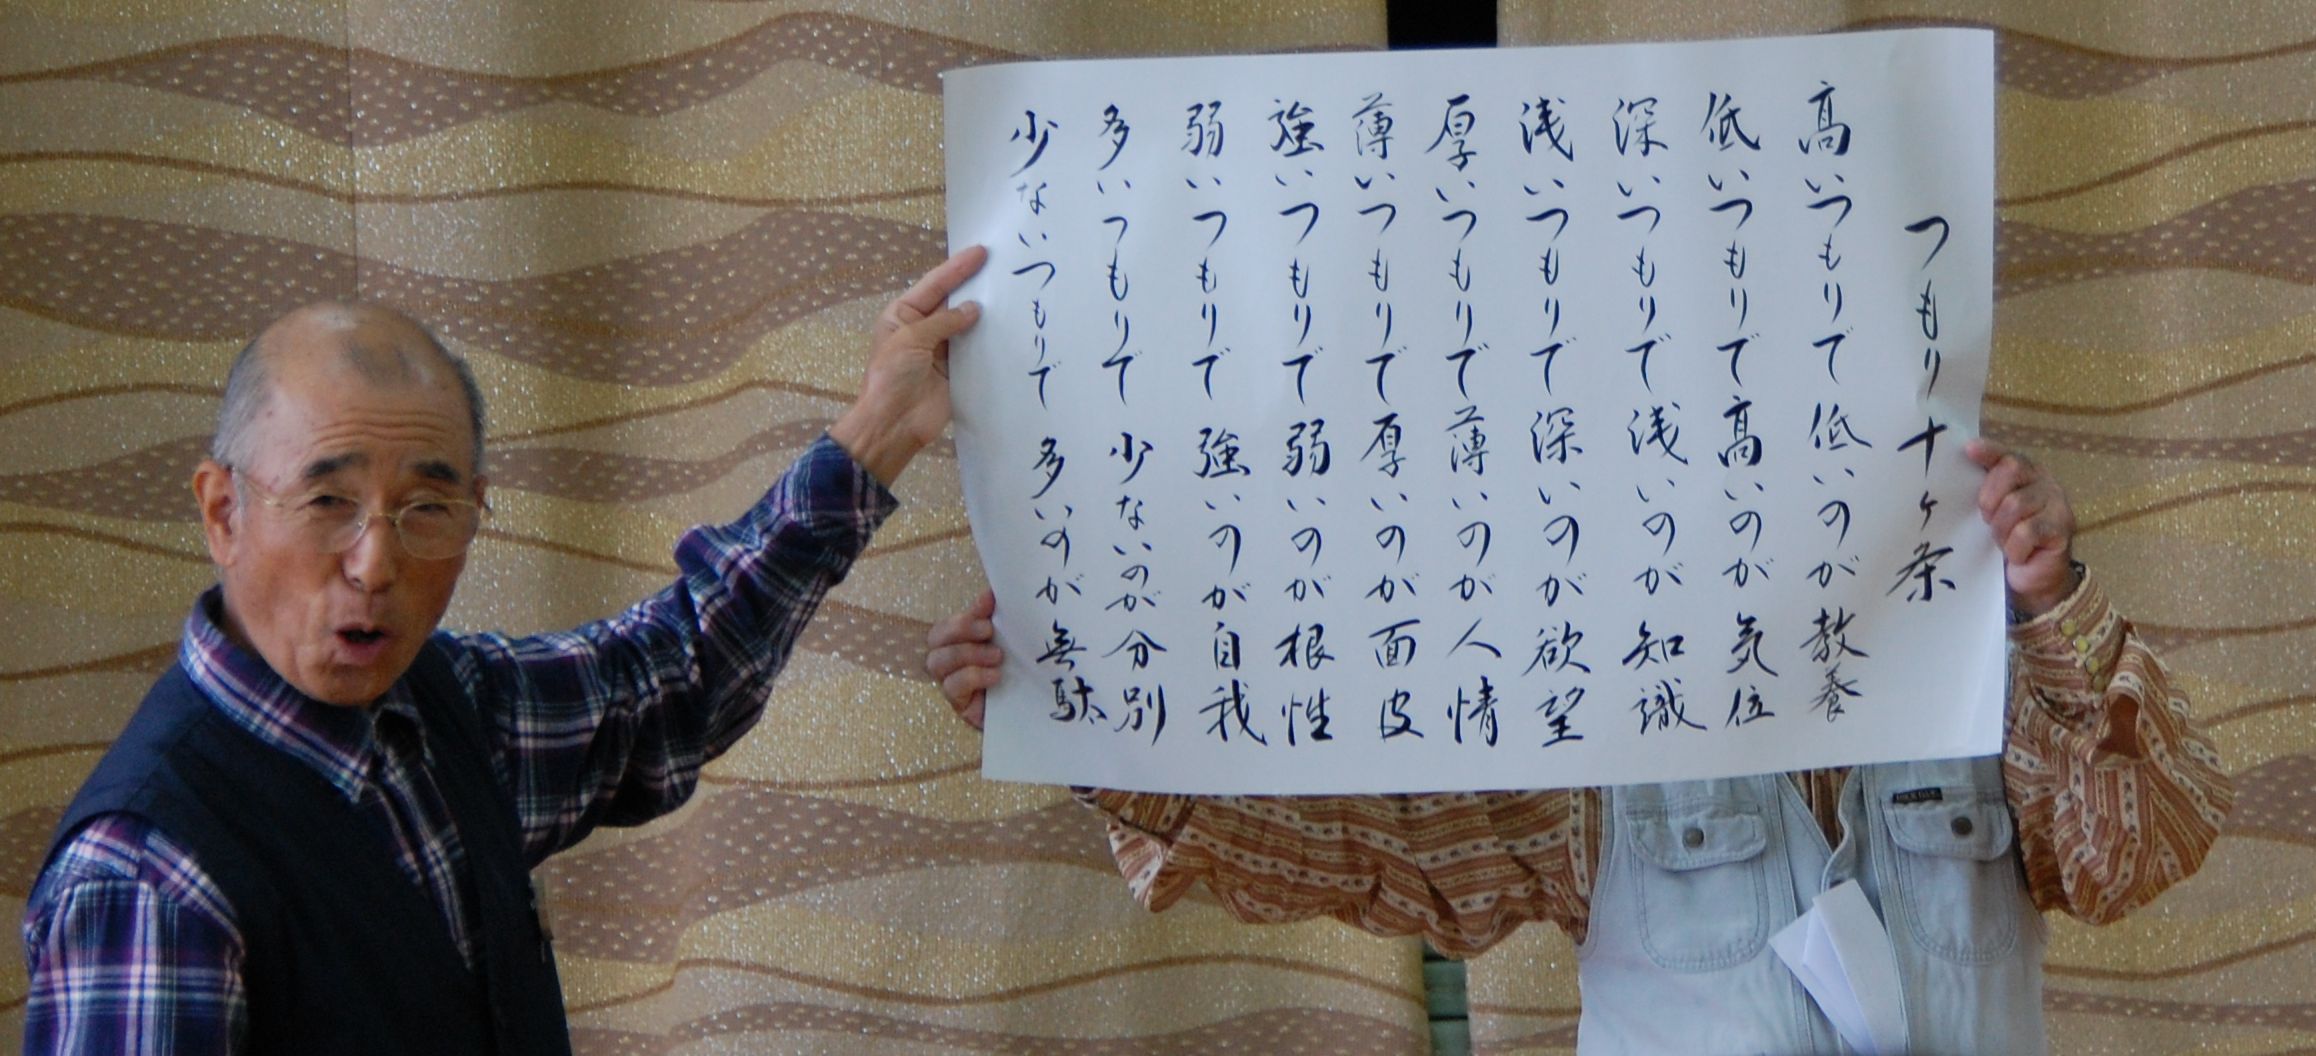 つもり十ヶ条
高いつもりで低いのが教養
低いつもりで高いのが気位
深いつもりで浅いのが知識
浅いつもりで深いのが欲望
厚いつもりで薄いのが人情
薄いつもりで厚いのが面皮
強いつもりで弱いのが根性
弱いつもりで強いのが自我
多いつもりで少ないのが分別
少ないつもりで多いのが無駄